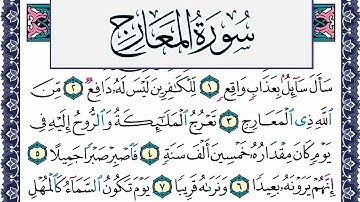 سُورَةُ المَعَارِجِ
سَأَلَ سَآئِلُۢ بِعَذَابٖ وَاقِعٖ ١ لِّلۡكَٰفِرِينَ لَيۡسَ لَهُۥ دَافِعٞ ٢ مِّنَ
ٱللَّهِ ذِي ٱلۡمَعَارِجِ ٣ تَعۡرُجُ ٱلۡمَلَٰٓئِكَةُ وَٱلرُّوحُ إِلَيۡهِ فِي
يَوۡمٖ كَانَ مِقۡدَارُهُۥ خَمۡسِينَ أَلۡفَ سَنَةٖ ٤ فَٱصۡبِرۡ صَبۡرٗا جَمِيلًا ٥
إِنَّهُمۡ يَرَوۡنَهُۥ بَعِيدٗا ٦ وَنَرَىٰهُ قَرِيبٗا ٧ يَوۡمَ تَكُونُ ٱلسَّمَآءُ كَٱلۡمُهۡلِ